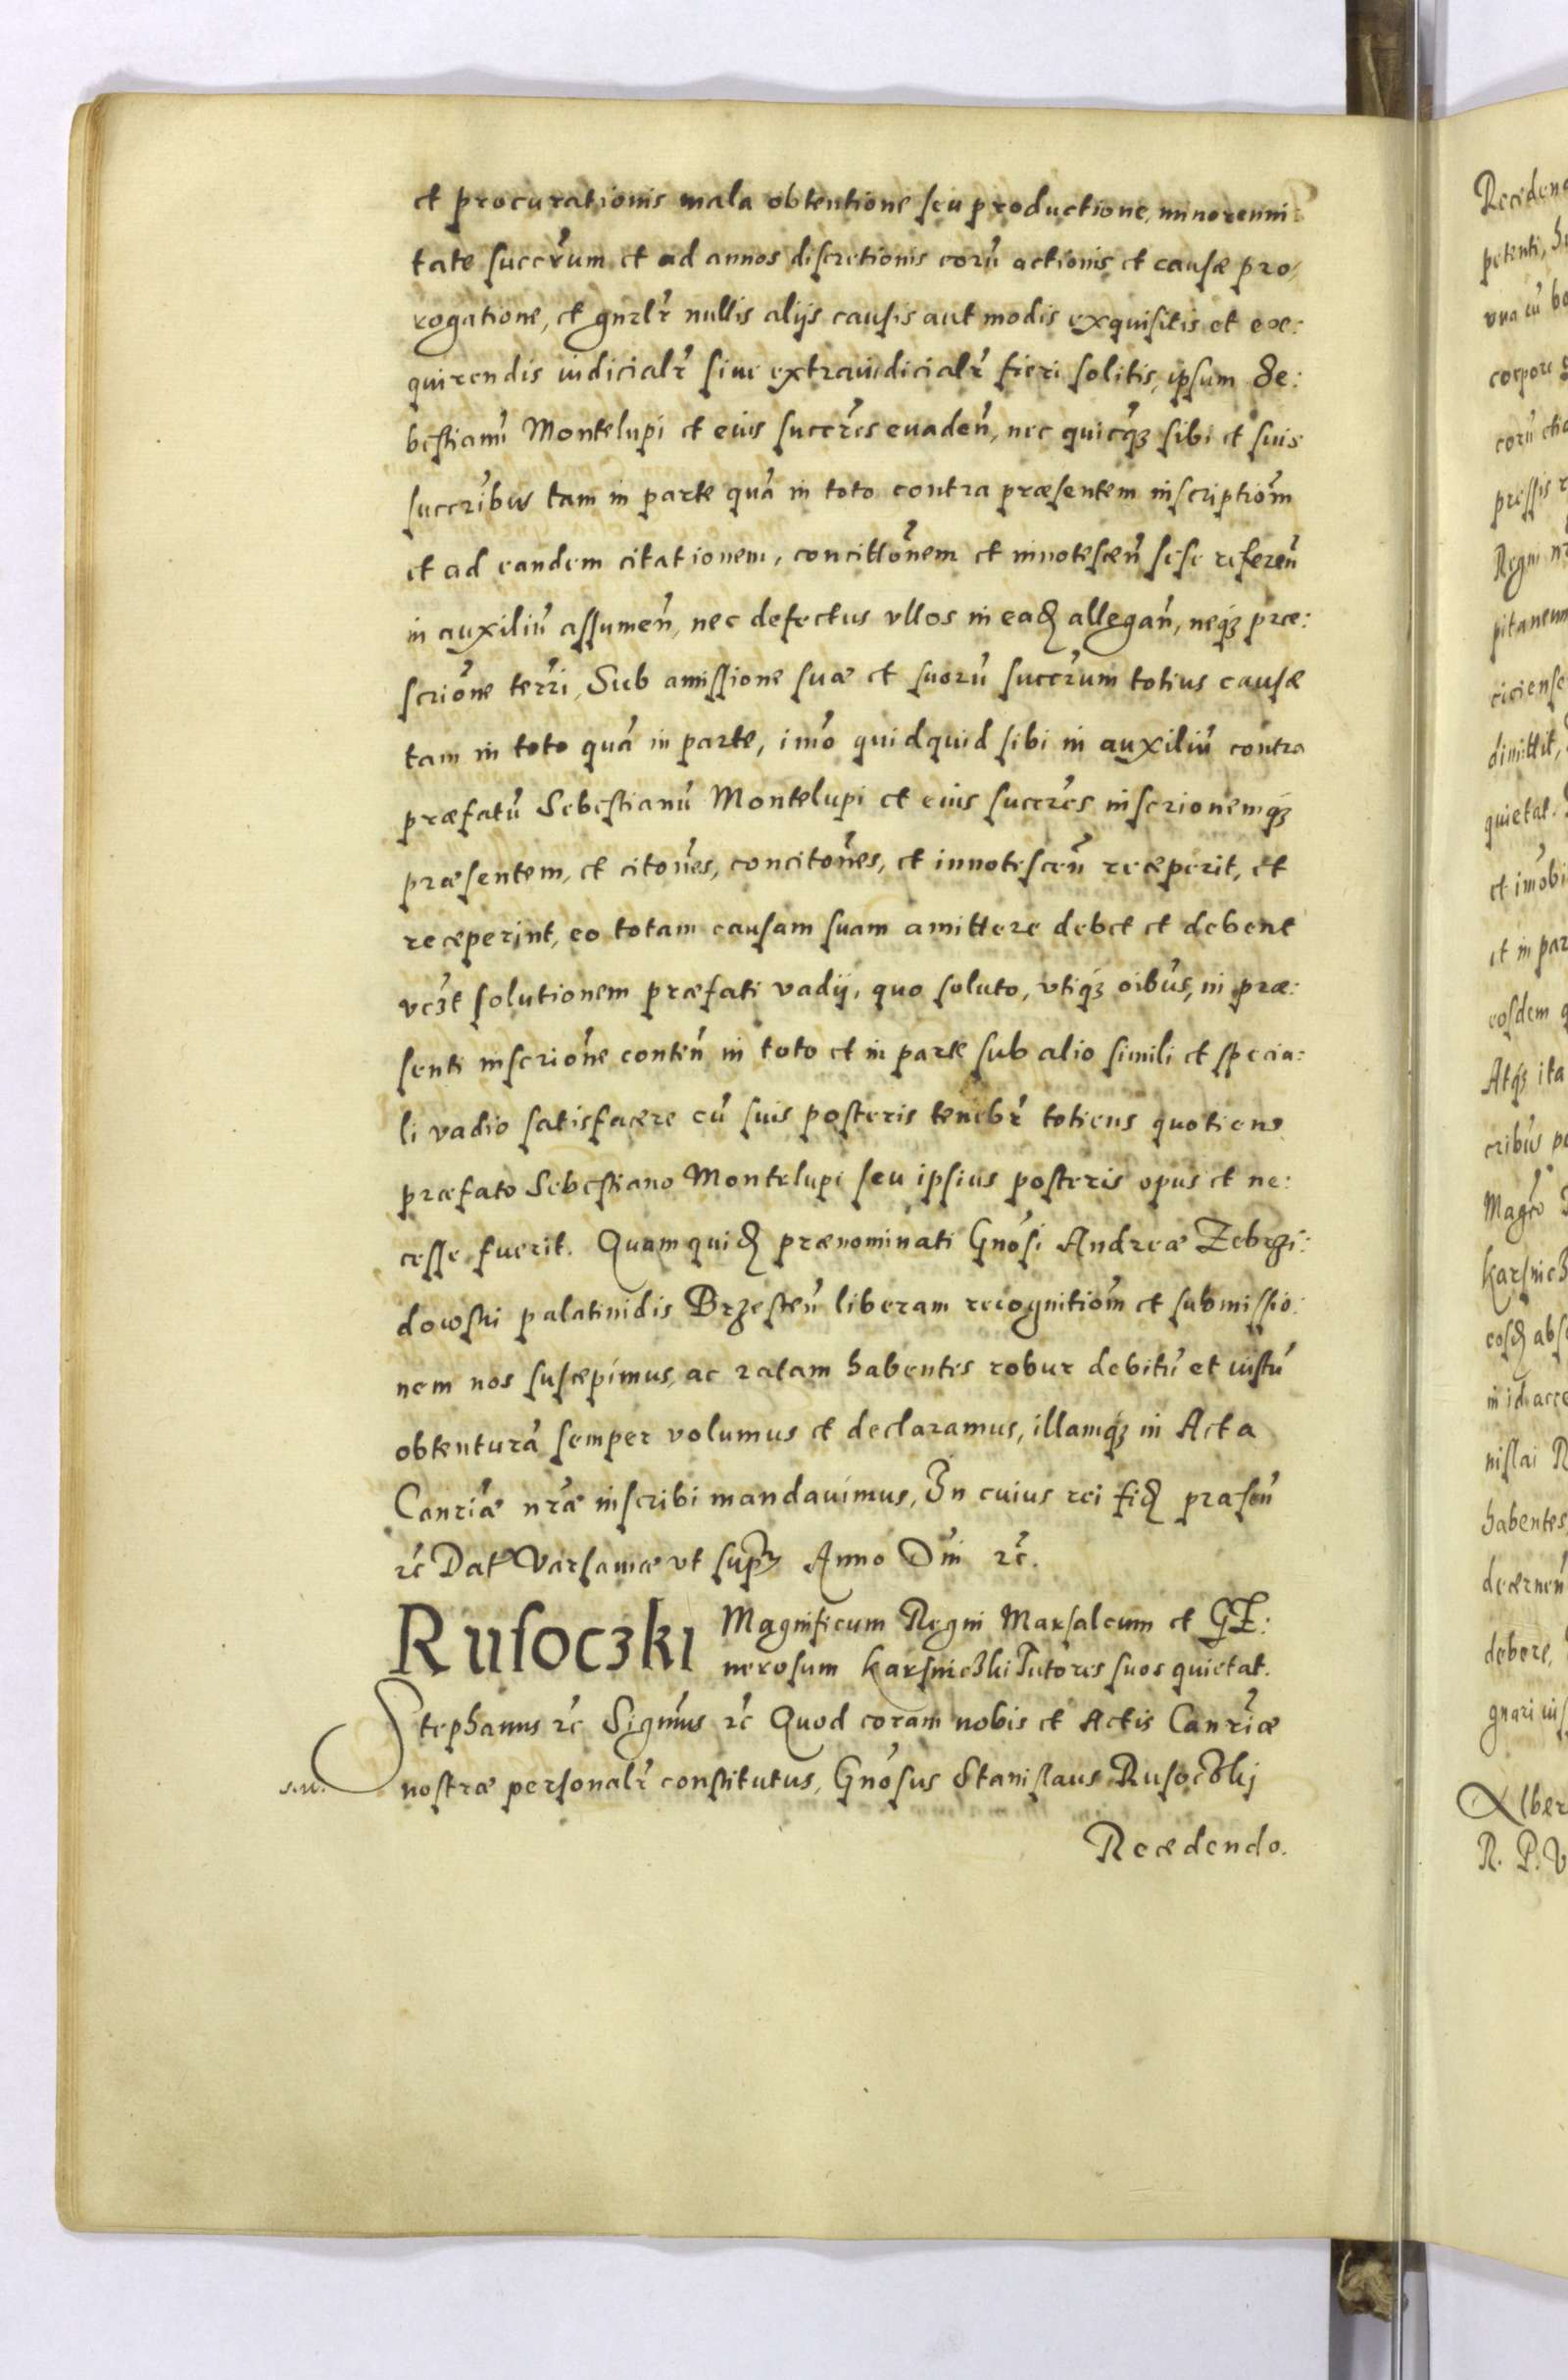 et procurationis mala obtentione seu productione, minorenni:
tate succrum et ad annos discretionis eorũ actionis et causæ pro,
rogatione, et gnrlr nullis alijs causis aut modis exquisitis et exe:
quirendis iudicialr siue extraiudicialr fieri solitis, ipsum Se:
bestianũ Montelupi et eius succres euaden, nec quicqz sibi et suis
succribus tam in parte quã in toto contra præsentem inscriptiom
et ad eandem citationem, concittonem et innotescen sese referen
in auxiliũ assumen, nec defectus vllos in ead allegan, neqz præ:
scrione terri, Sub amissione suæ et suorũ succrum totius causæ
tam in toto quã in parte, imo quidquid sibi in auxiliũ contra
præfatũ Sebestianũ Montelupi et eius succres inscrionemqz
præsentem, et citones, concitones, et innotescen receperit, et
receperint, eo totam causam suam amittere debet et debent
vczt solutionem præfati vadij, quo soluto, vtiqz oibus, in præ:
senti inscrione conten in toto et in parte sub alio simili et specia:
li vadio satisfacere cũ suis posteris tenebr totiens quotiens
præfato Sebestiano Montelupi seu ipsius posteris opus et ne:
cesse fuerit. Quam quid prænominati Gnosi Andreæ Zebrzi:
dowski palatinidis Brzesten liberam recognitiom et submissio:
nem nos suscepimus, ac ratam habentes robur debitũ et iustũ
obtenturã semper volumus et declaramus, illamqz in Acta
Canriæ nræ inscribi mandauimus, In cuius rei fid præsen
rc Dat Varsauiæ vt supra Anno Dni rc.
Rusoczki Magnificum Regni Marsalcum et GE:
nerosum Karsniczki Tutores suos quietat.
Stephanus rc Significamus rc Quod coram nobis et Actis Canriæ
nostræ personalr constitutus, Gnosus Stanislaus Rusoczkj
Recedendo.
Recedend
petenti,
vna cũ bo
corpore
corũ
pressis
Regni
pitaneum
ciciense
dimittit,
quietat.
et imobi
et in par
eosdem q
Atqz ita
cribus po
Magco
Karsnicz
eosd abs
in id acce
nislai R
habentes
decernen
debere,
gnari ius
Alber
R. P. V